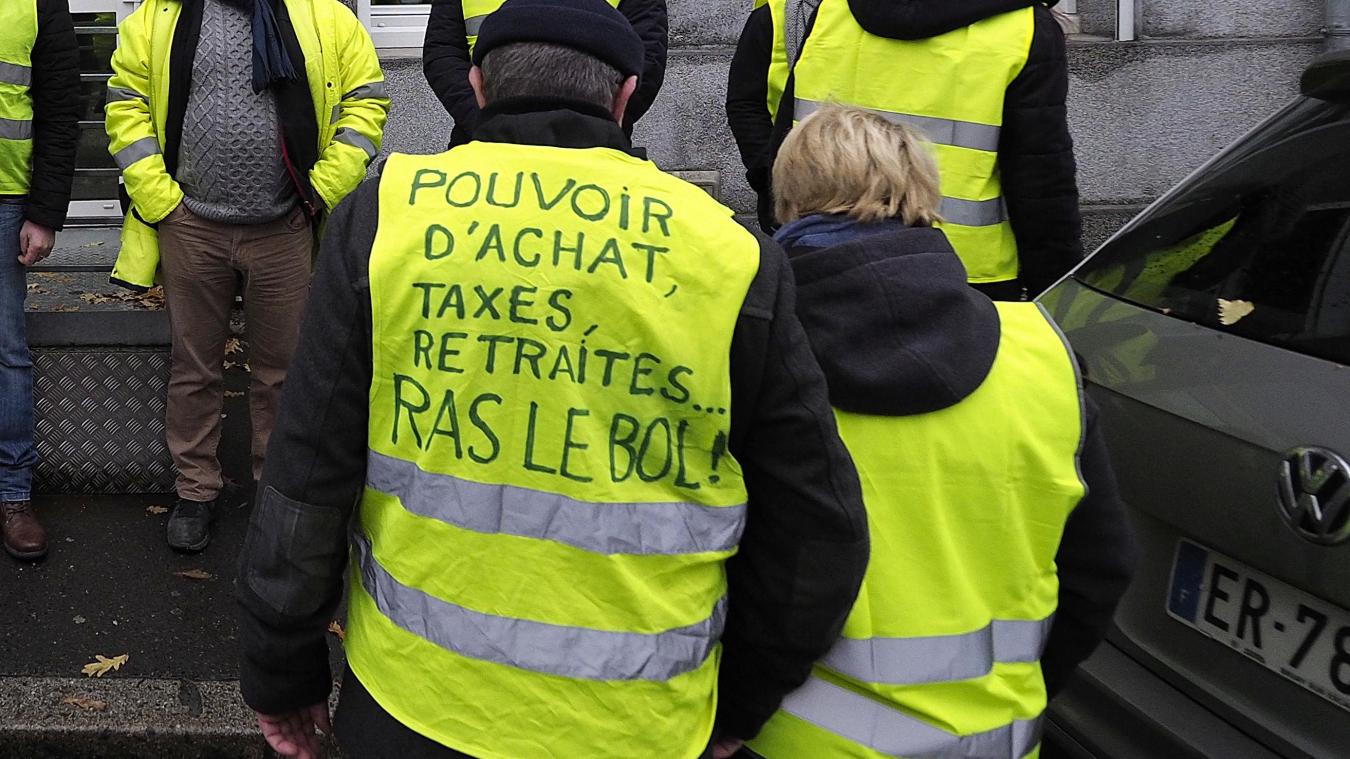 POUVOIR
D'ACHAT,
TAXES,
RETRAÍTES...
RAS LE BOL!
F
ER-78